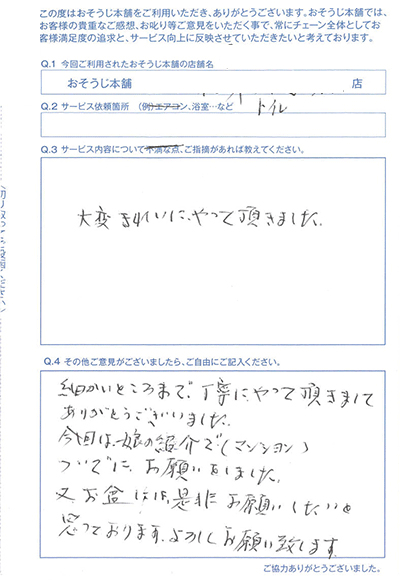 この度はおそうじ本舗をご利用いただき、ありがとうございます。おそうじ本舗では、
お客様の貴重なご感想、お叱り等ご意見をいただく事で、常にチェーン全体としてお
客様満足度の追求と、サービス向上に反映させていただきたいと考えております。
Q.1 今回ご利用されたおそうじ本舗の店舗名
おそうじ本舗 店
Q.2 サービス依頼箇所 (例)エアコン、浴室…など
トイレ
Q.3 サービス内容について不満な点、ご指摘があれば教えてください。
大変きれいに、やって頂きました。
Q.4 その他ご意見がございましたら、ご自由にご記入ください。
細かいところまで、丁寧にやって頂きまして
ありがとうございいました。
今回は、娘の紹介で(マンション)
ついでに、お願いをしました。
又、お盆には、是非お願いしたいと
思っております。よろしくお願い致します。
ご協力ありがとうございました。